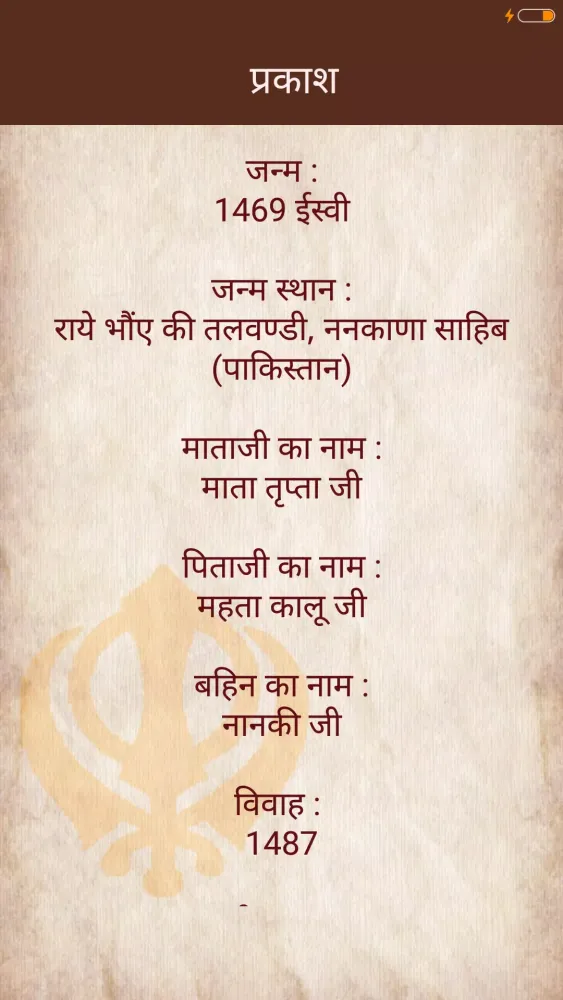 प्रकाश
जन्म :
1469 ईस्वी
जन्म स्थान :
राये भौंए की तलवण्डी, ननकाणा साहिब
(पाकिस्तान)
माताजी का नाम :
माता तृप्ता जी
पिताजी का नाम :
महता कालू जी
बहिन का नाम :
नानकी जी
विवाह :
1487